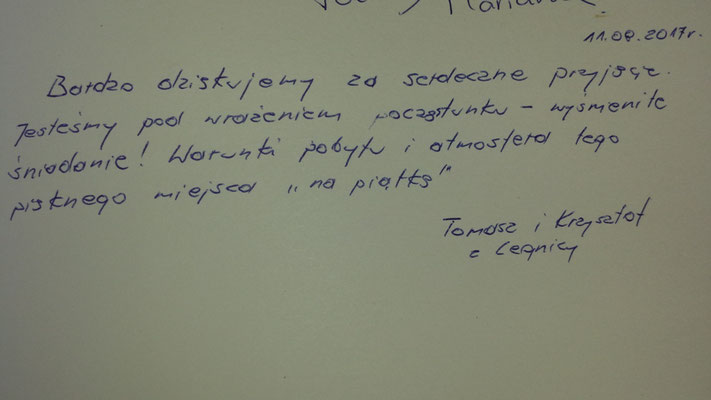 11.08.2017r.
Bardzo dziękujemy za serdeczne przyjęcie.
Jesteśmy pod wrażeniem poczęstunku - wyśmienite
śniadanie! Warunki pobytu i atmosfera tego
pięknego miejsca „na piątkę"
Tomasz i Krzysztof
z Legnicy